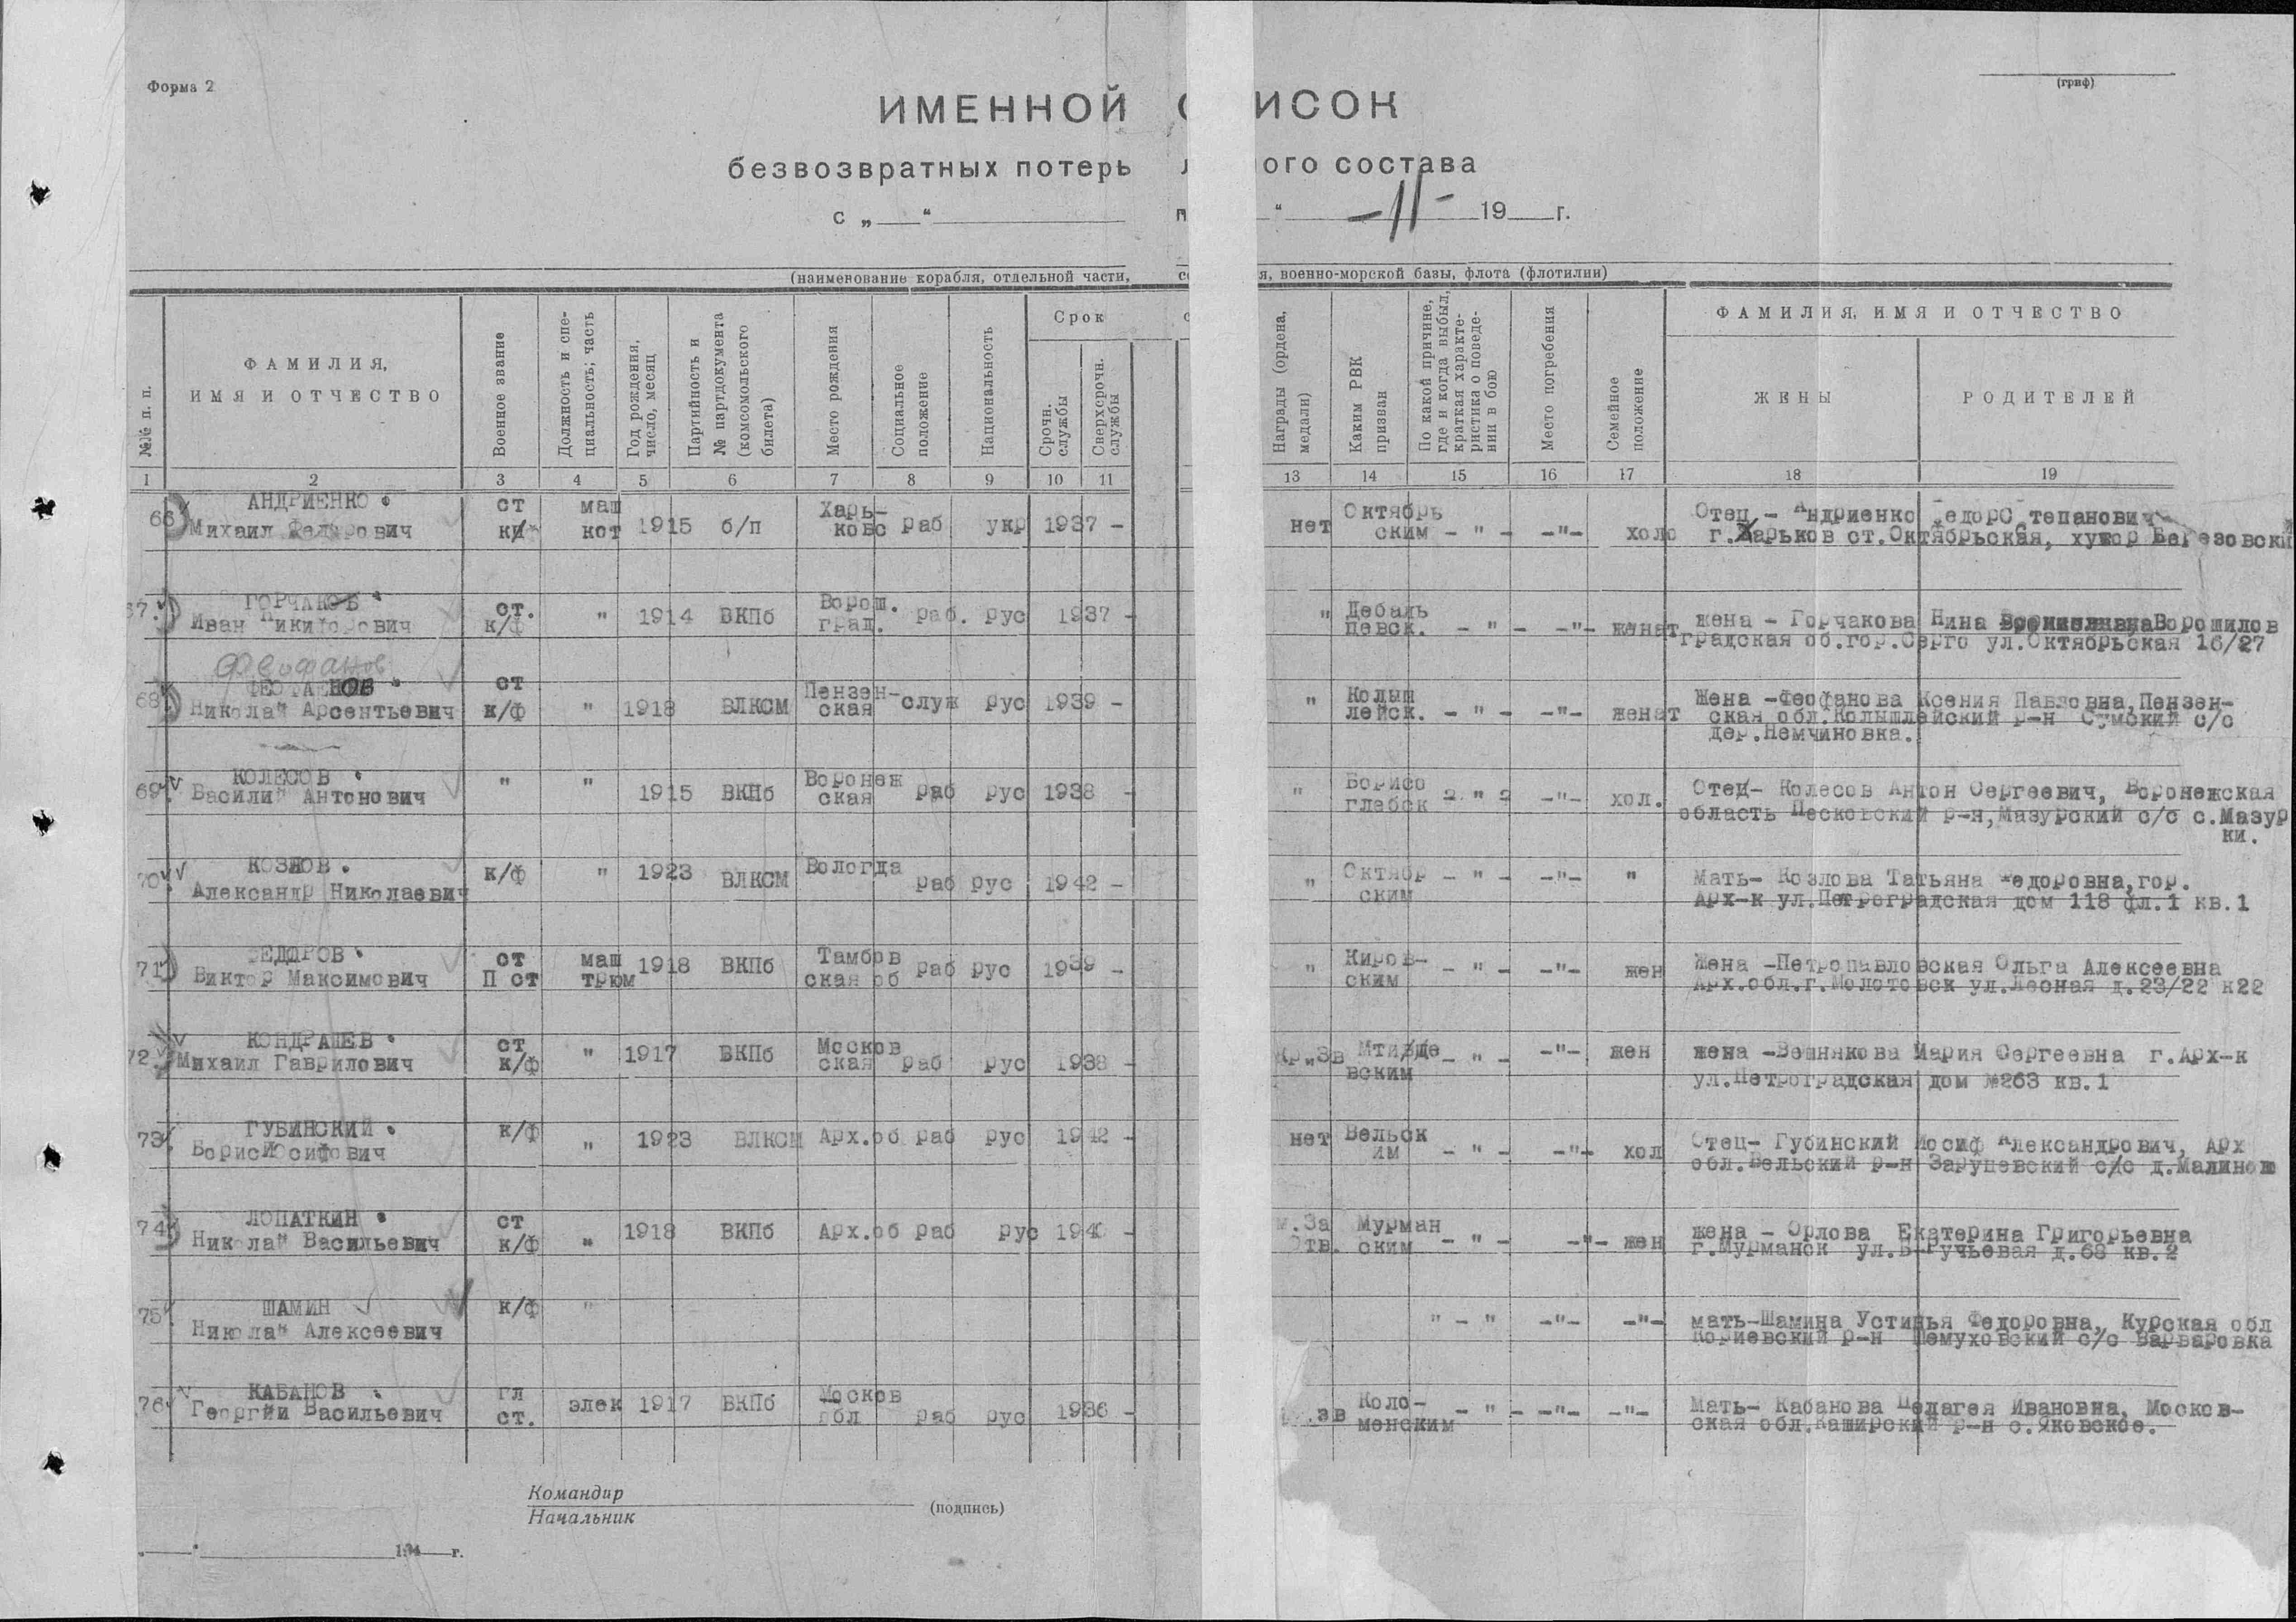 Форма 2
(гриф)
ИМЕННОЙ С ИСОК
безвозвратных потерь л ого состава
с „ “ п “ -11- 19 г.
(наименование корабля, отдельной части, со я, военно-морской базы, флота (флотилии)
№№ п. п.
ФАМИЛИЯ,
ИМЯ И ОТЧЕСТВО
Военное звание
Должность и спе-
циальность; часть
Год рождения,
число, месяц
Партийность и
№ партдокумента
(комсомольского
билета)
Место рождения
Социальное
положение
Национальность
Срок с
Срочн.
службы
Сверхсрочн.
службы
Награды (ордена,
медали)
Каким РВК
призван
По какой причине,
где и когда выбыл,
краткая характе-
ристика о поведе-
нии в бою
Место погребения
Семейное
положение
ФАМИЛИЯ, ИМЯ И ОТЧЕСТВО
ЖЕНЫ
РОДИТЕЛЕЙ
1 2 3 4 5 6 7 8 9 10 11 13 14 15 16 17 18 19
АНДРИЕНКО ст маш Харь- Октябрь Отец - Андриенко Федор Степанович
66 Михаил Федорович к/ф кот 1915 б/п ковс раб укр 1937 - нет ским - " - -"- холо г.Харьков ст.Октябрьская, хутор Березовски
ГОРЧАКОВ ст. " 1914 ВКПб Ворош. раб. рус 1937 - " Дебаль жена - Горчакова Нина Ворошилов
67. Иван Никифорович к/ф град. цевск. - " - -"- женат градская об.гор.Серго ул.Октябрьская 16/27
Феофанов
ФЕОФАНОВ ст Пензен- " Колыш Жена -Феофанова Ксения Павловна,Пензен-
68 Николай Арсентьевич к/ф " 1918 ВЛКСМ ская служ рус 1939 - лейск. - " - -"- женат ская обл.Колышлейский р-н Сумский с/с
дер.Немчиновка.
КОЛЕСОВ " " Воронеж " Борисо Отец- Колесов Антон Сергеевич, Воронежская
69 Василий Антонович 1915 ВКПб ская раб рус 1938 - глебск - " - -"- хол. область Песковский р-н,Мазурский с/с с.Мазур
ки.
КОЗЛОВ. к/ф " 1923 ВЛКСМ Вологда Октябр - " - -"- " Мать- Козлова Татьяна Федоровна,гор.
70 Александр Николаевич раб рус 1942 - " ским Арх-к ул.Петроградская дом 118 фл.1 кв.1
ФЕДОРОВ ст маш 1918 ВКПб Тамбов раб рус 1939 - " Киров- - " - -"- жен Жена -Петропавловская Ольга Алексеевна
71 Виктор Максимович П ст трюм ская об ским Арх.обл.г.Молотовск ул.Лесная д.23/22 к22
КОНДРАШЕВ ст " 1917 ВКПб Москов Мтище - " - -"- жен жена -Вешнякова Мария Сергеевна г.Арх-к
72. Михаил Гаврилович к/ф ская раб рус 1938 - Кр.Зв вским ул.Петроградская дом №263 кв.1
ГУБИНСКИЙ к/ф " 1923 ВЛКСМ Арх.об раб рус 1942 - нет Вельск Отец- Губинский Иосиф Александрович, Арх
73 Борис Иосифович им - " - -"- хол обл.Вельский р-н с/с д.Малинов
ЛОПАТКИН ст 1918 ВКПб Арх.об раб рус 1940 - м.За Мурман жена - Орлова Екатерина Григорьевна
74 Николай Васильевич к/ф " Отв. ским - " - -"- жен г.Мурманск ул.В-Ручьевая д.68 кв.2
ШАМИН к/ф " " - " -"- -"- мать-Шамина Устинья Федоровна, Курская обл
75 Николай Алексеевич р-н с/с Варваровка
КАБАНОВ гл элек 1917 ВКПб Москов Коло- - " - -"- -"- Мать- Кабанова Пелагея Ивановна, Москов-
76 Георгий Васильевич ст. обл раб рус 1936 - зв менским ская обл.Каширский р-н с.Яковское.
Командир
Начальник
(подпись)
„ “ 194 г.